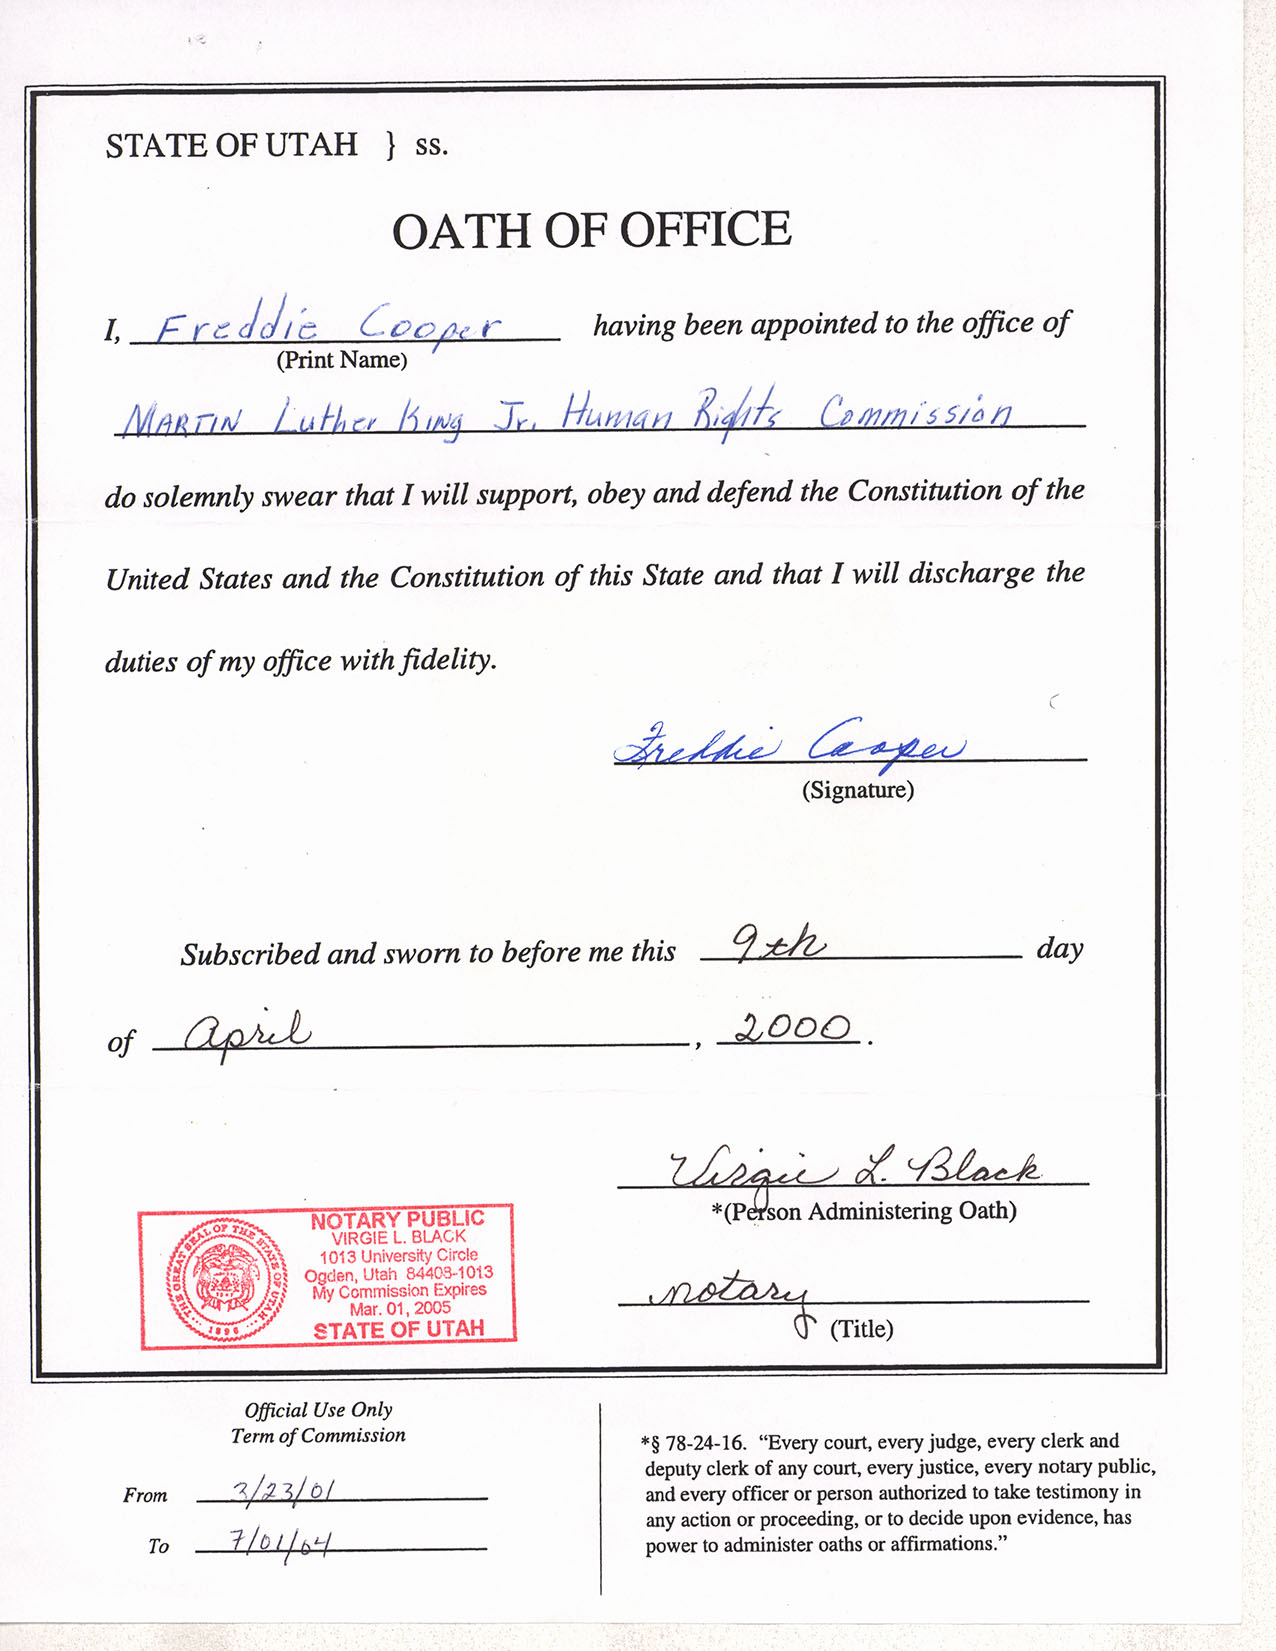 STATE OF UTAH } ss.
OATH OF OFFICE
I, Freddie Cooper having been appointed to the office of
(Print Name)
MARTIN Luther King Jr. Human Rights Commission
do solemnly swear that I will support, obey and defend the Constitution of the
United States and the Constitution of this State and that I will discharge the
duties of my office with fidelity.
Freddie Cooper
(Signature)
Subscribed and sworn to before me this 9th day
of April, 2000.
Virgie L. Black
*(Person Administering Oath)
notary
(Title)
THE GREAT SEAL OF THE STATE OF UTAH
1896
NOTARY PUBLIC
VIRGIE L. BLACK
1013 University Circle
Ogden, Utah 84403-1013
My Commission Expires
Mar. 01, 2005
STATE OF UTAH
Official Use Only
Term of Commission
From 3/23/01
To 7/01/04
*§ 78-24-16. “Every court, every judge, every clerk and
deputy clerk of any court, every justice, every notary public,
and every officer or person authorized to take testimony in
any action or proceeding, or to decide upon evidence, has
power to administer oaths or affirmations.”